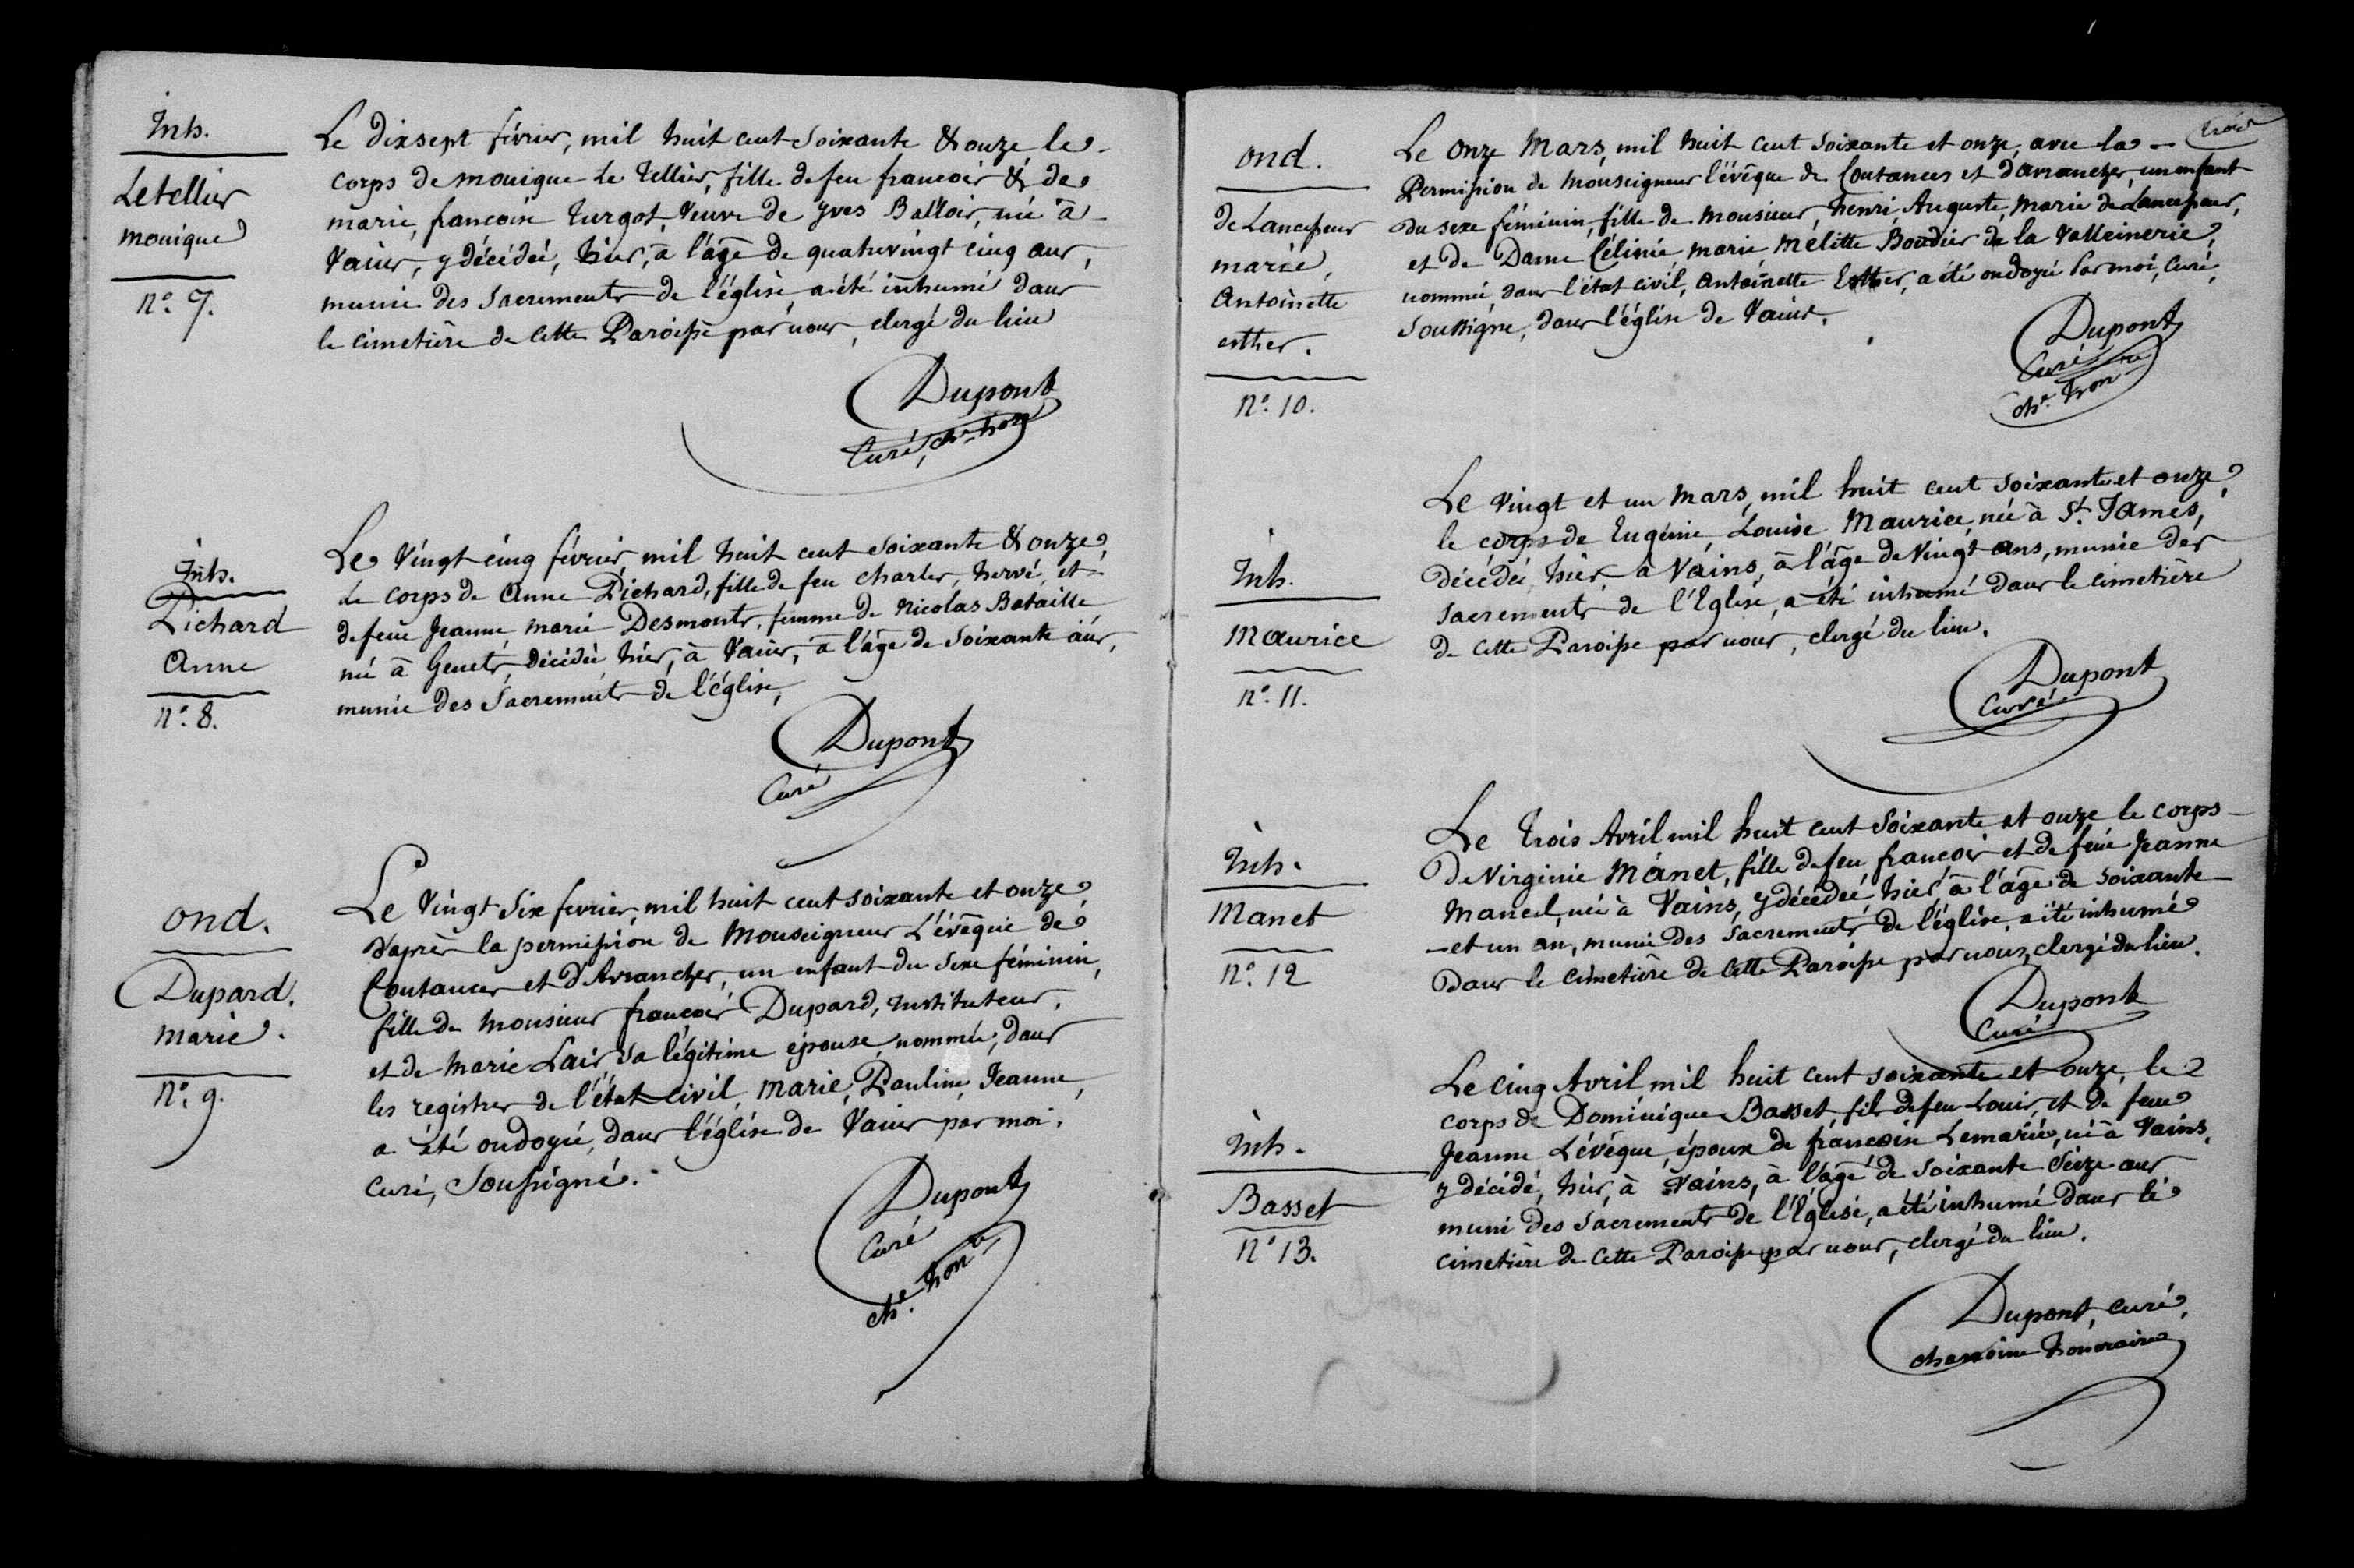 Inh.
Letellier
monique
N°. 7.
Le dixsept février, mil huit cent soixante & onze le
corps de monique Le Tellier, fille de feu francois & de
marie, francoise Turgot, veuve de yves Balloir, née à
Vains, y décédée, hier, à l'âge de quatrevingt cinq ans,
munie des sacrements de l'église, a été inhumé dans
le cimetière de cette Paroisse par nous, clergé du lieu
Dupont
Curé, che. hon
Inh.
Pichard
Anne
N°. 8.
Le Vingt cinq février, mil huit cent soixante & onze,
Le corps de Anne Pichard, fille de feu charles, hervé, et
de feue Jeanne, marie Desmonts, femme de Nicolas Bataille
née à Genets, décédée hier, à Vains, à l'âge de soixante ans,
munie des Sacrements de l'église,
Dupont
Curé
ond.
Dupard.
marie.
N°. 9.
Le Vingt Six fevrier, mil huit cent soixante et onze,
d'après la permission de Monseigneur L'évêque de
Coutances et D'Avranches, un enfant du sexe féminin,
fille de Monsieur francois Dupard, instituteur,
et de Marie Lair, sa légitime épouse, nommée, dans
les registres de l'état civil, Marie, Pauline, Jeanne,
a été ondoyée, dans l'église de Vains par moi,
curé, Soussigné.
Dupont
Curé
che. honre
Trois
ond.
de Lancesseur
marie,
Antoinette
esther.
N°. 10.
Le Onze Mars, mil huit cent soixante et onze, avec la
Permission de Monseigneur l'évêque de Coutances et d'avranches, un enfant
du sexe féminin, fille de Monsieur, henri, Auguste, Marie de Lancesseur,
et de Dame Célinie, marie, Mélitte Boudier de la Valleinerie,
nommée, dans l'état civil, Antoinette Esther, a été ondoyée Par moi, Curé,
Soussigné, dans l'église de Vains.
Dupont
Curé
che. honre
Inh.
Maurice
N°. 11.
Le Vingt et un Mars, mil huit cent soixante et onze,
le corps de Eugénie, Louise Maurice, née à St. James,
décédée, hier à Vains, à l'âge de Vingt ans, munie des
sacrements de l'Eglise, a été inhumé dans le cimetière
de cette Paroisse par nous, clergé du lieu.
Dupont
Curé
Inh.
Manet
N°. 12
Le Trois Avril mil huit cent soixante et onze le corps
De Virginie Manet, fille de feu françois et de feue Jeanne
Mancel, née à Vains, y décédée hier, à l'âge de soixante
et un an, munie des sacrements de l'église, a été inhumé
Dans le cimetière de cette Paroisse par nous, clergé du lieu.
Dupont
Curé
Inh.
Basset
N° 13.
Le cinq Avril mil huit cent soixante et onze, le
corps de Dominique Basset fils de feu Louis, et de feue
Jeanne Lévêque, époux de françoise Lemarié, né à Vains,
y décédé, hier, à Vains, à l'âge de soixante Seize ans
muni des sacrements de l'Eglise, a été inhumé dans le
cimetière de cette Paroisse par nous, clergé du lieu.
Dupont, curé,
chanoine honoraire